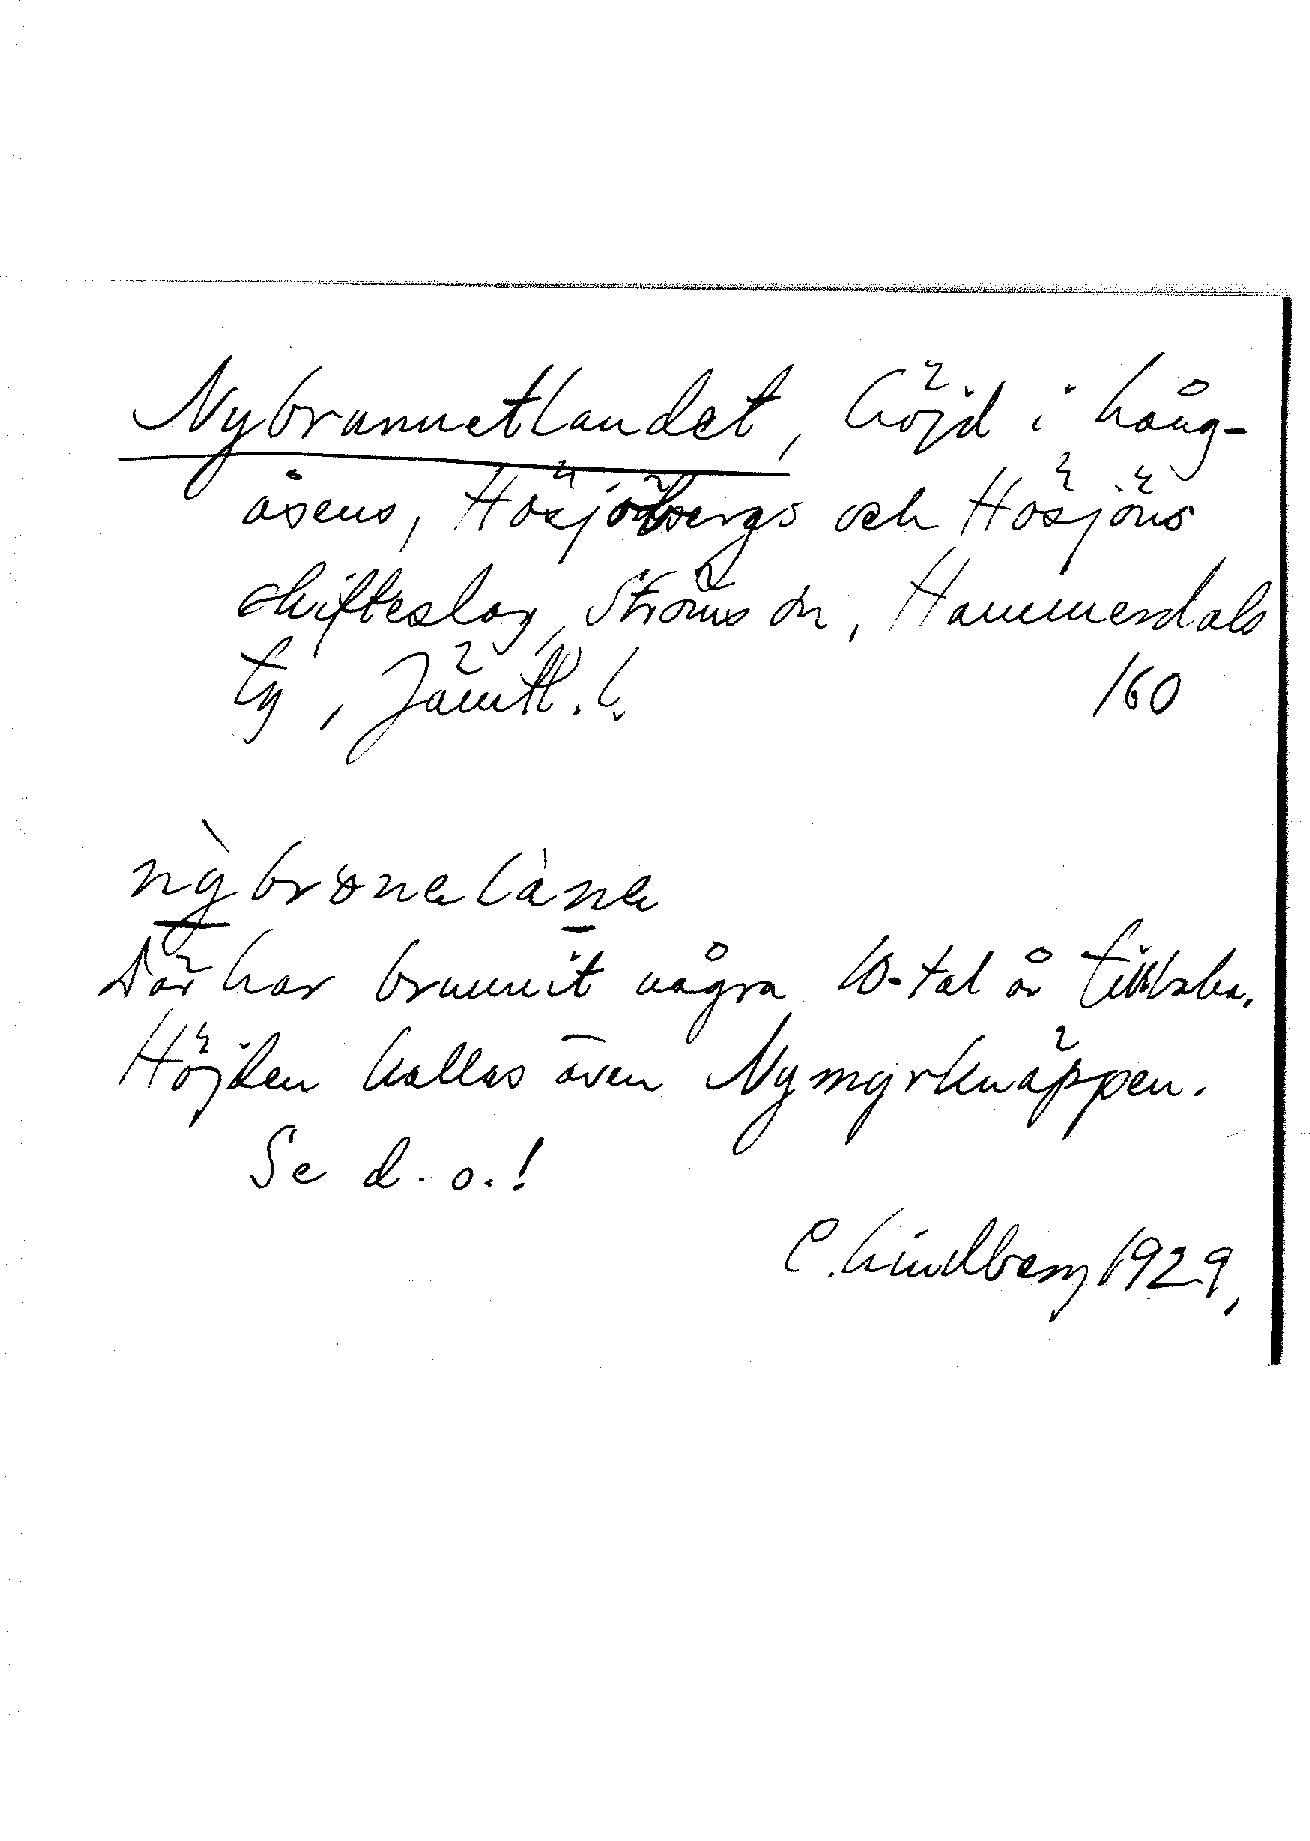 Nybrunnetlandet, höjd i Lång-
åsens, Hösjöbergs och Hösjöns
skifteslag, Ströms sn, Hammerdals
tg, Jämtl. l. 160
Där har brunnit några 10-tal år tillbaka.
Höjden kallas även Nymyrknäppen.
Se d. o.!
C. Lindberg 1929,